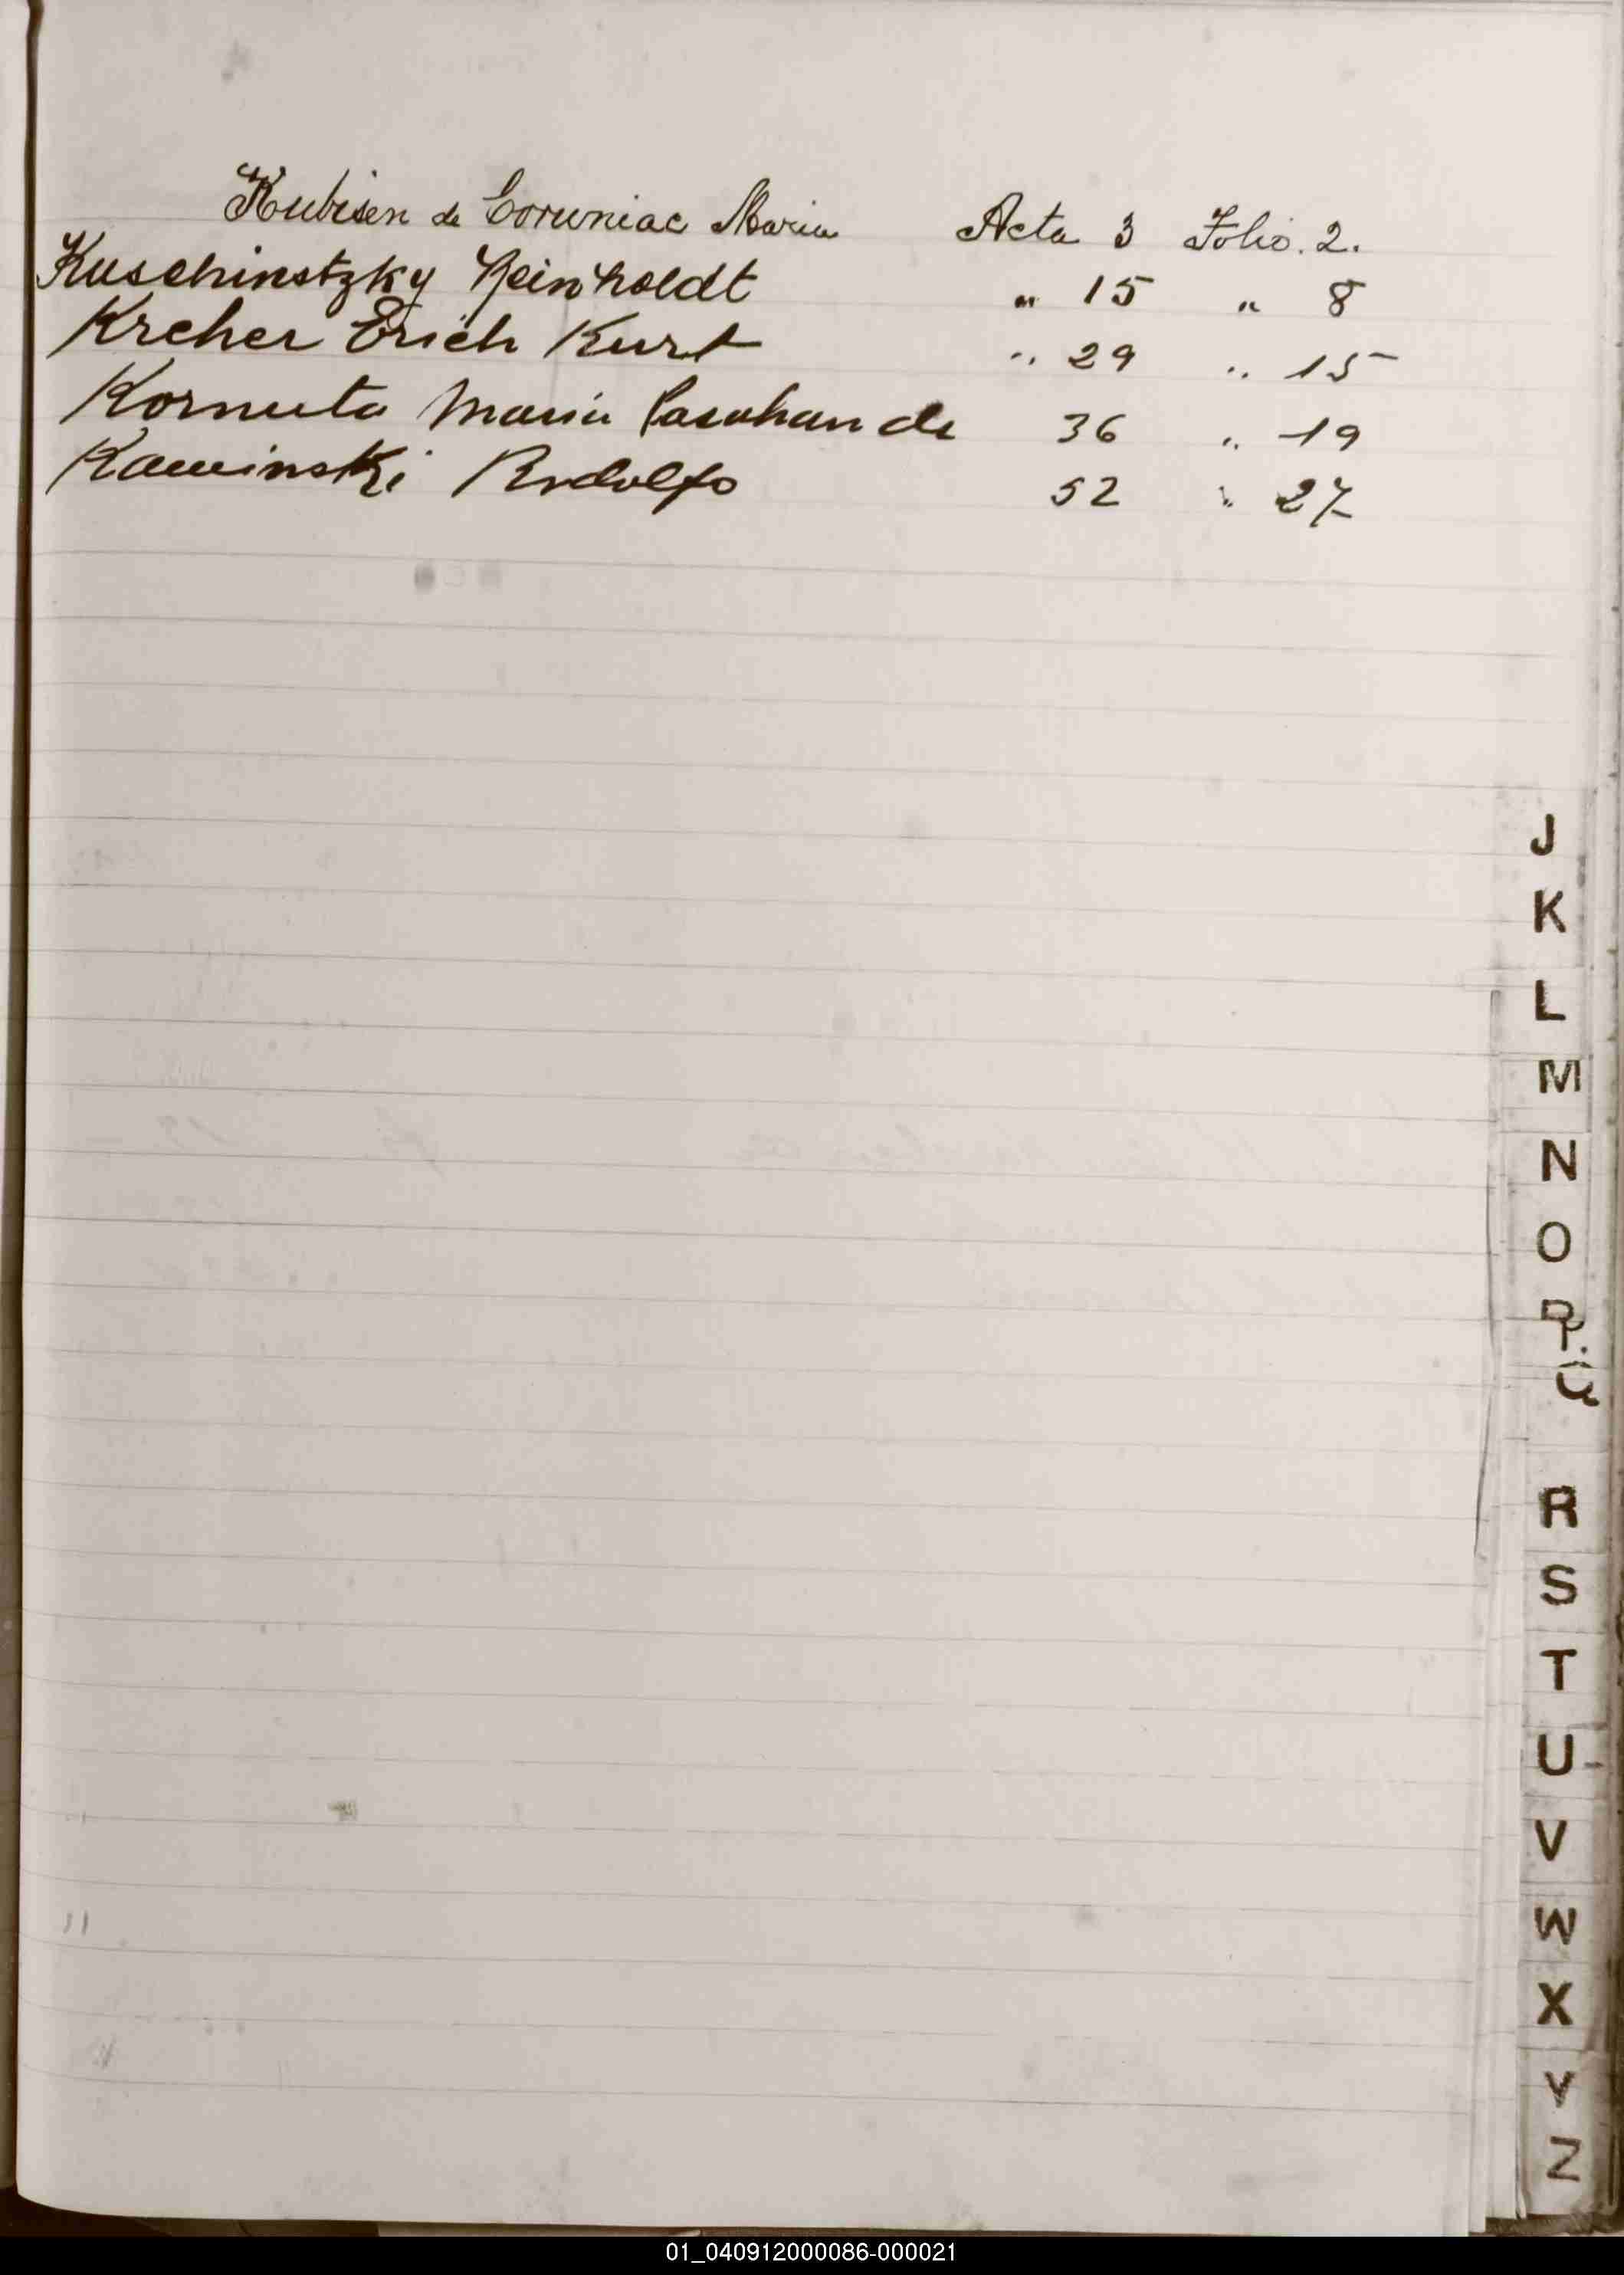 Kubisen de Coruniac Maria Acta 3 Folio. 2.
Kuschinstzky Reinholdt " 15 " 8
Krcher Erich Kurt " 29 " 15
Kornuta Maria de 36 " 19
Kaminski Rodolfo 52 " 27
J
K
L
M
N
O
P.
Q
R
S
T
U
V
W
X
Y
Z
01_040912000086-000021